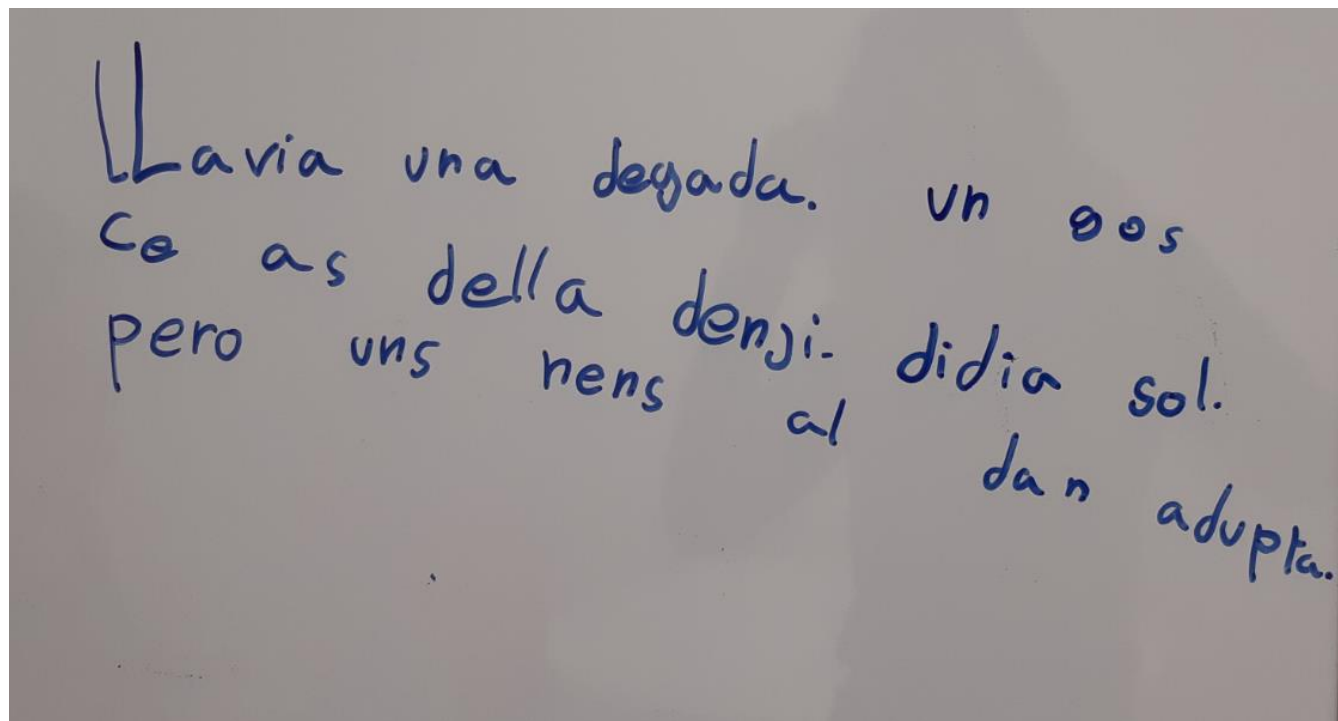 LLavia una degada. un gos
ce as della denji. didia sol.
pero uns nens al dan adupta.